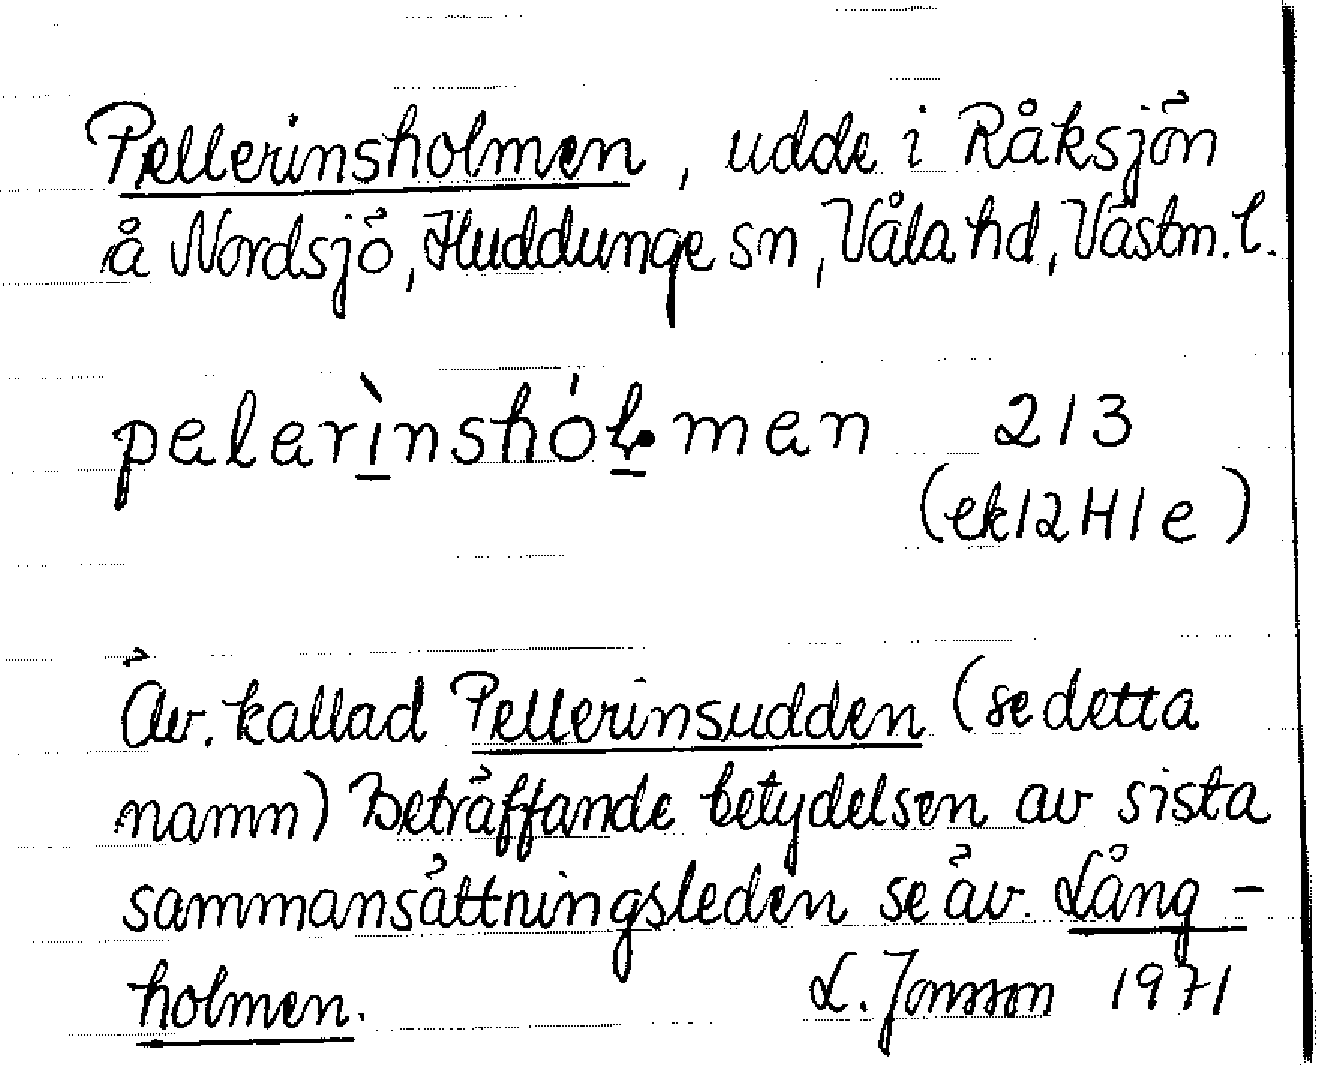 Pellerinsholmen, udde i Råksjön
å Nordsjö, Huddunge sn, Våla hd, Västm. l.
pelerìnshól•men 213
(ek 12H1e)
Äv. kallad Pellerinsudden (se detta
namn) Beträffande betydelsen av sista
sammansättningsleden se äv. Lång-
holmen. L. Jonsson 1971